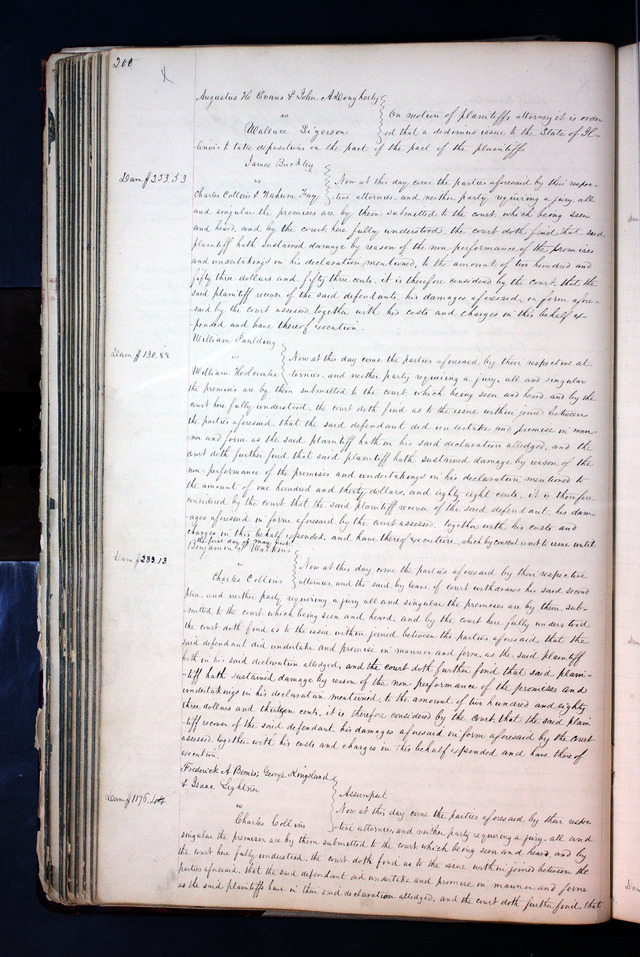 200
Augustus H. Evans & John A Dougherty
vs
Wallace Sigerson
On motion of plaintiffs attorney it is order
ed that a dedimus issue to the State of Il-
linois to take depositions on the part of the part of the plaintiffs
James Buckley
Dam $253.53
vs
Charles Collins & Nahum Fay
Now at this day come the parties aforesaid by their respec-
tive attornies, and neither party requiring a jury, all
and singular the premises are by them submitted to the court, which being seen
and heard, and by the court here fully understood, the court doth find that said
plaintiff hath sustained damage by reason of the non performance of the promises
and undertakings in his declaration mentioned, to the amount of two hundred and
fifty three dollars and fifty three cents. it is therefore considered by the court, that the
said plaintiff recover of the said defendants, his damages aforesaid, in form afore-
said by the court assessed, together with his costs and charges in this behalf ex-
pended and have thereof execution.
William Paulding
Dam $130.88
vs
William Holcombe
Now at this day come the parties aforesaid by their respective at-
tornies, and neither party requiring a jury, all and singular
the premises are by them submitted to the court which being seen and heard, and by the
court here fully understood, the court doth find as to the issue within joined between
the parties aforesaid, that the said defendant did undertake and promise in man-
ner and form as the said plaintiff hath in his said declaration alledged, and the
court doth further find that said plaintiff hath sustained damage by reason of the
non-performance of the premises and undertakings in his declaration mentioned to
the amount of one hundred and thirty dollars, and eighty eight cents, it is therefore
considered by the court that the said plaintiff recover of the said defendant. his dam-
ages aforesaid in form aforesaid by the court assessed, together with his costs and
charges in this behalf expended, and have thereof execution, which by consent is not to issue until
the first day of may next
Benjamin Watkins
Dam $283.13
vs
Charles Collins
Now at this day come the parties aforesaid by their respective
attornies, and the said by leave of court withdraws his said second
plea, and neither party requiring a jury all and singular the premises are by them sub-
mitted to the court which being seen and heard, and by the court here fully understood
the court doth find as to the issue within joined between the parties aforesaid, that the
said defendant did undertake and promise in manner and form, as the said plaintiff
hath in his said declaration alledged, and the court doth further find that said plain-
tiff hath sustained damage by reason of the non performance of the promises and
undertakings in his declaration mentioned, to the amount of two hundred and eighty
three dollars and thirteen cents, it is therefore considered by the court that the said plain
tiff recover of the said defendant his damages aforesaid in form aforesaid by the court
assessed, together with his costs and charges in this behalf expended and have thereof
execution
Frederick A Bemis, George Kingsland
& Isaac Lightner
Dam $1176.44
vs
Charles Collins
Assumpsit
Now at this day come the parties aforesaid by their respec
tive attornies, and neither party requiring a jury, all and
singular the premises are by them submitted to the court which being seen and heard and by
the court here fully understood, the court doth find as to the issue within joined between the
parties aforesaid, that the said defendant did undertake and promise in manner and form
as the said plaintiffs have in their said declaration alledged, and the court doth further find that